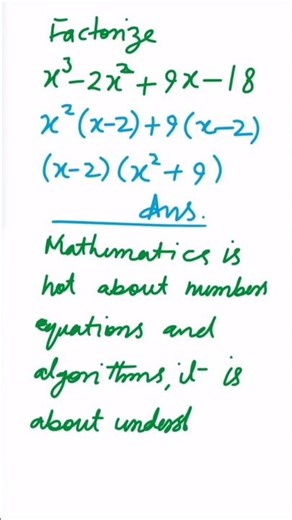 Factorize
x³-2x²+9x-18
x²(x-2)+9(x-2)
(x-2)(x²+9)
Ans.
Mathematics is
not about numbers
equations and
algorithms, it is
about underst